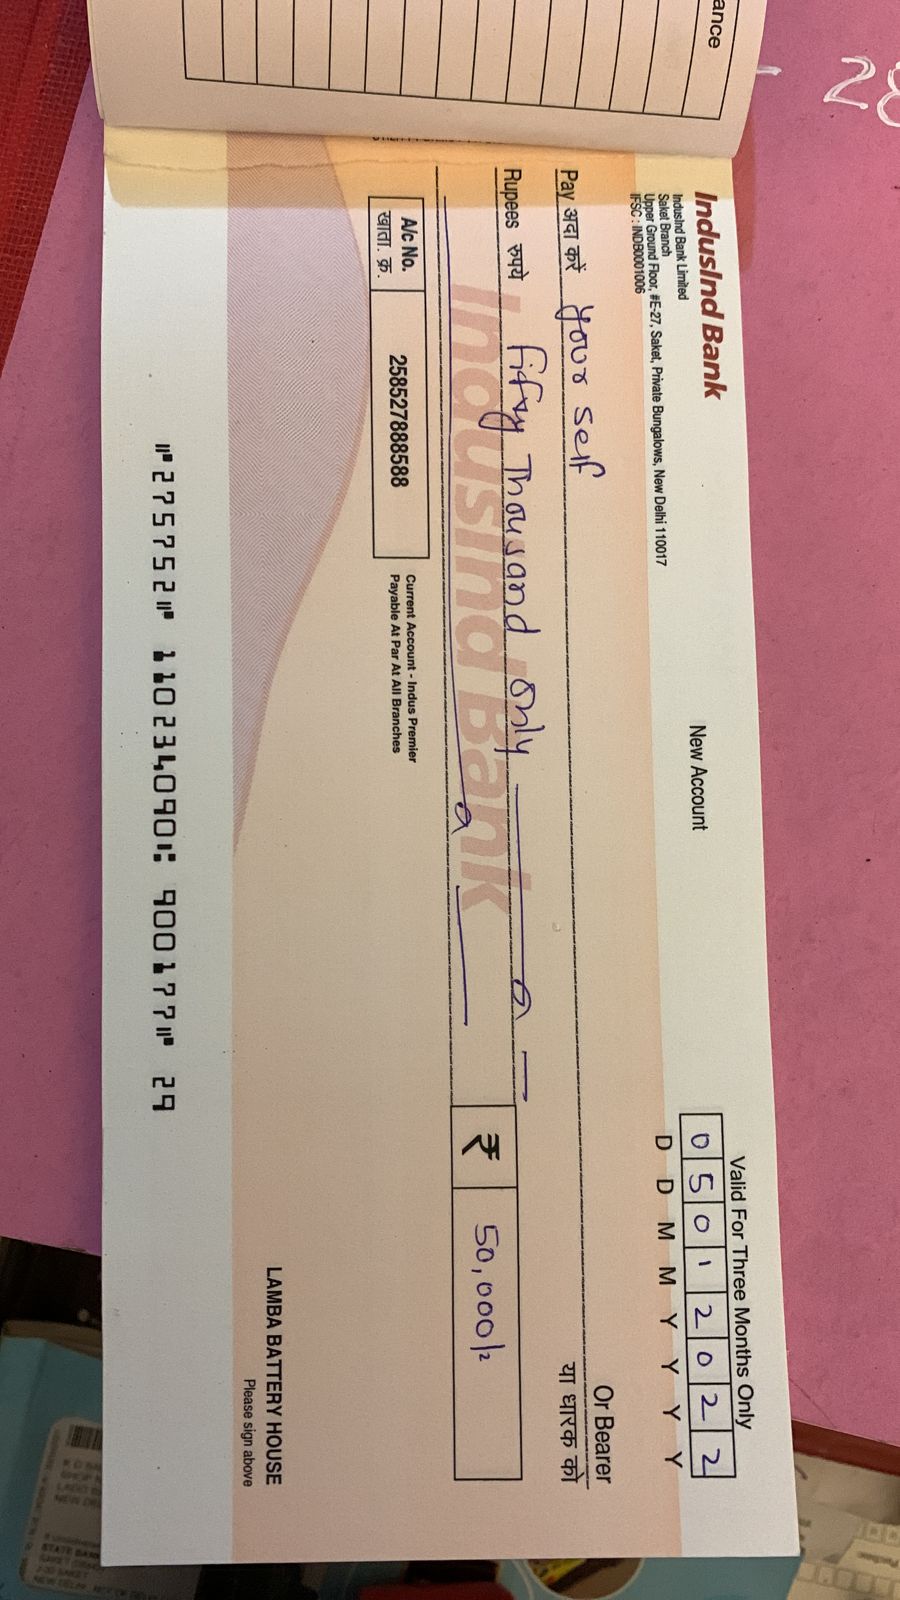 28
ance
IndusInd Bank
IndusInd Bank Limited
Saket Branch
Upper Ground Floor, #E-27, Saket, Private Bungalows, New Delhi 110017
IFSC : INDB0001006
New Account
Valid For Three Months Only
0 5 0 1 2 0 2 2
D D M M Y Y Y Y
Pay अदा करें your self
Or Bearer
या धारक को
Rupees रुपये fifty Thousand only
IndusInd Bank
₹ 50,000/=
A/c No.
खाता. क्र.
258527888588
Current Account - Indus Premier
Payable At Par At All Branches
LAMBA BATTERY HOUSE
Please sign above
⑈275752⑈ 110234090⑆ 900177⑈ 29